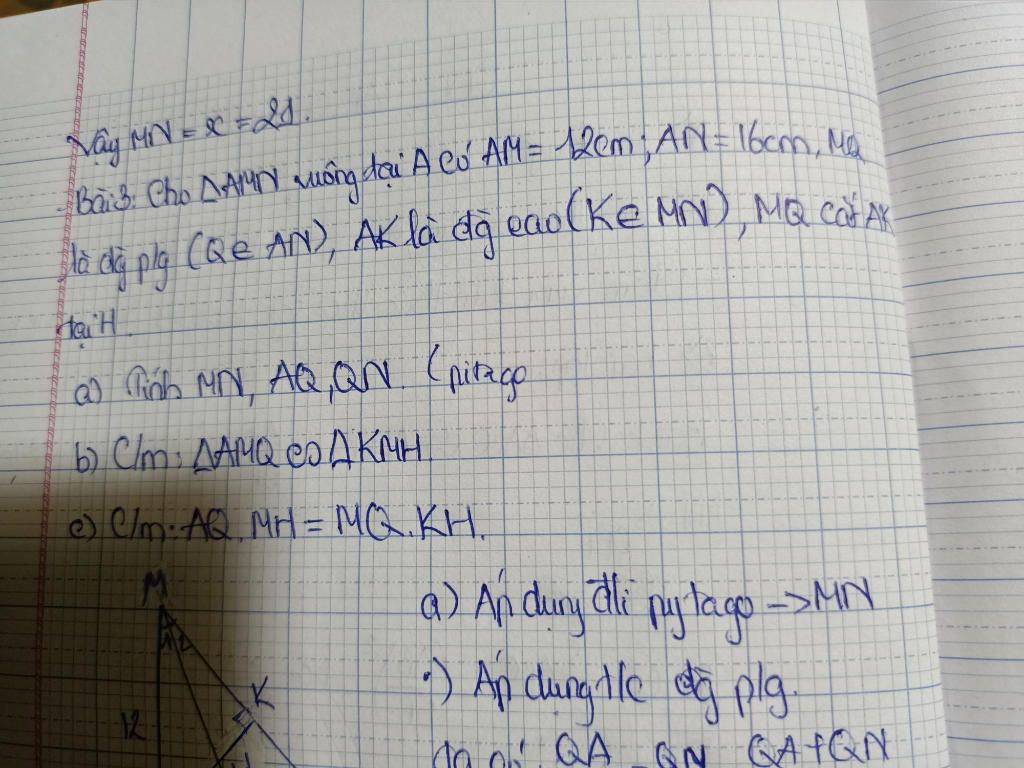 Vây MN = x = 21.
Bài 3: Cho ΔAMN vuông tại A có AM = 12cm; AN = 16cm, MQ
là đg plg (Q∈ AN), AK là đg cao (K∈ MN), MQ cắt AK
tại H
a) Tính MN, AQ, QN. (pitago
b) C/m: ΔAMQ ∽ ΔKMH
c) C/m: AQ. MH = MQ. KH.
M
1 2
12
K
H
a) Áp dụng đlí pytago -> MN
•) Áp dụng t/c đg plg.
QA QN QA+QN